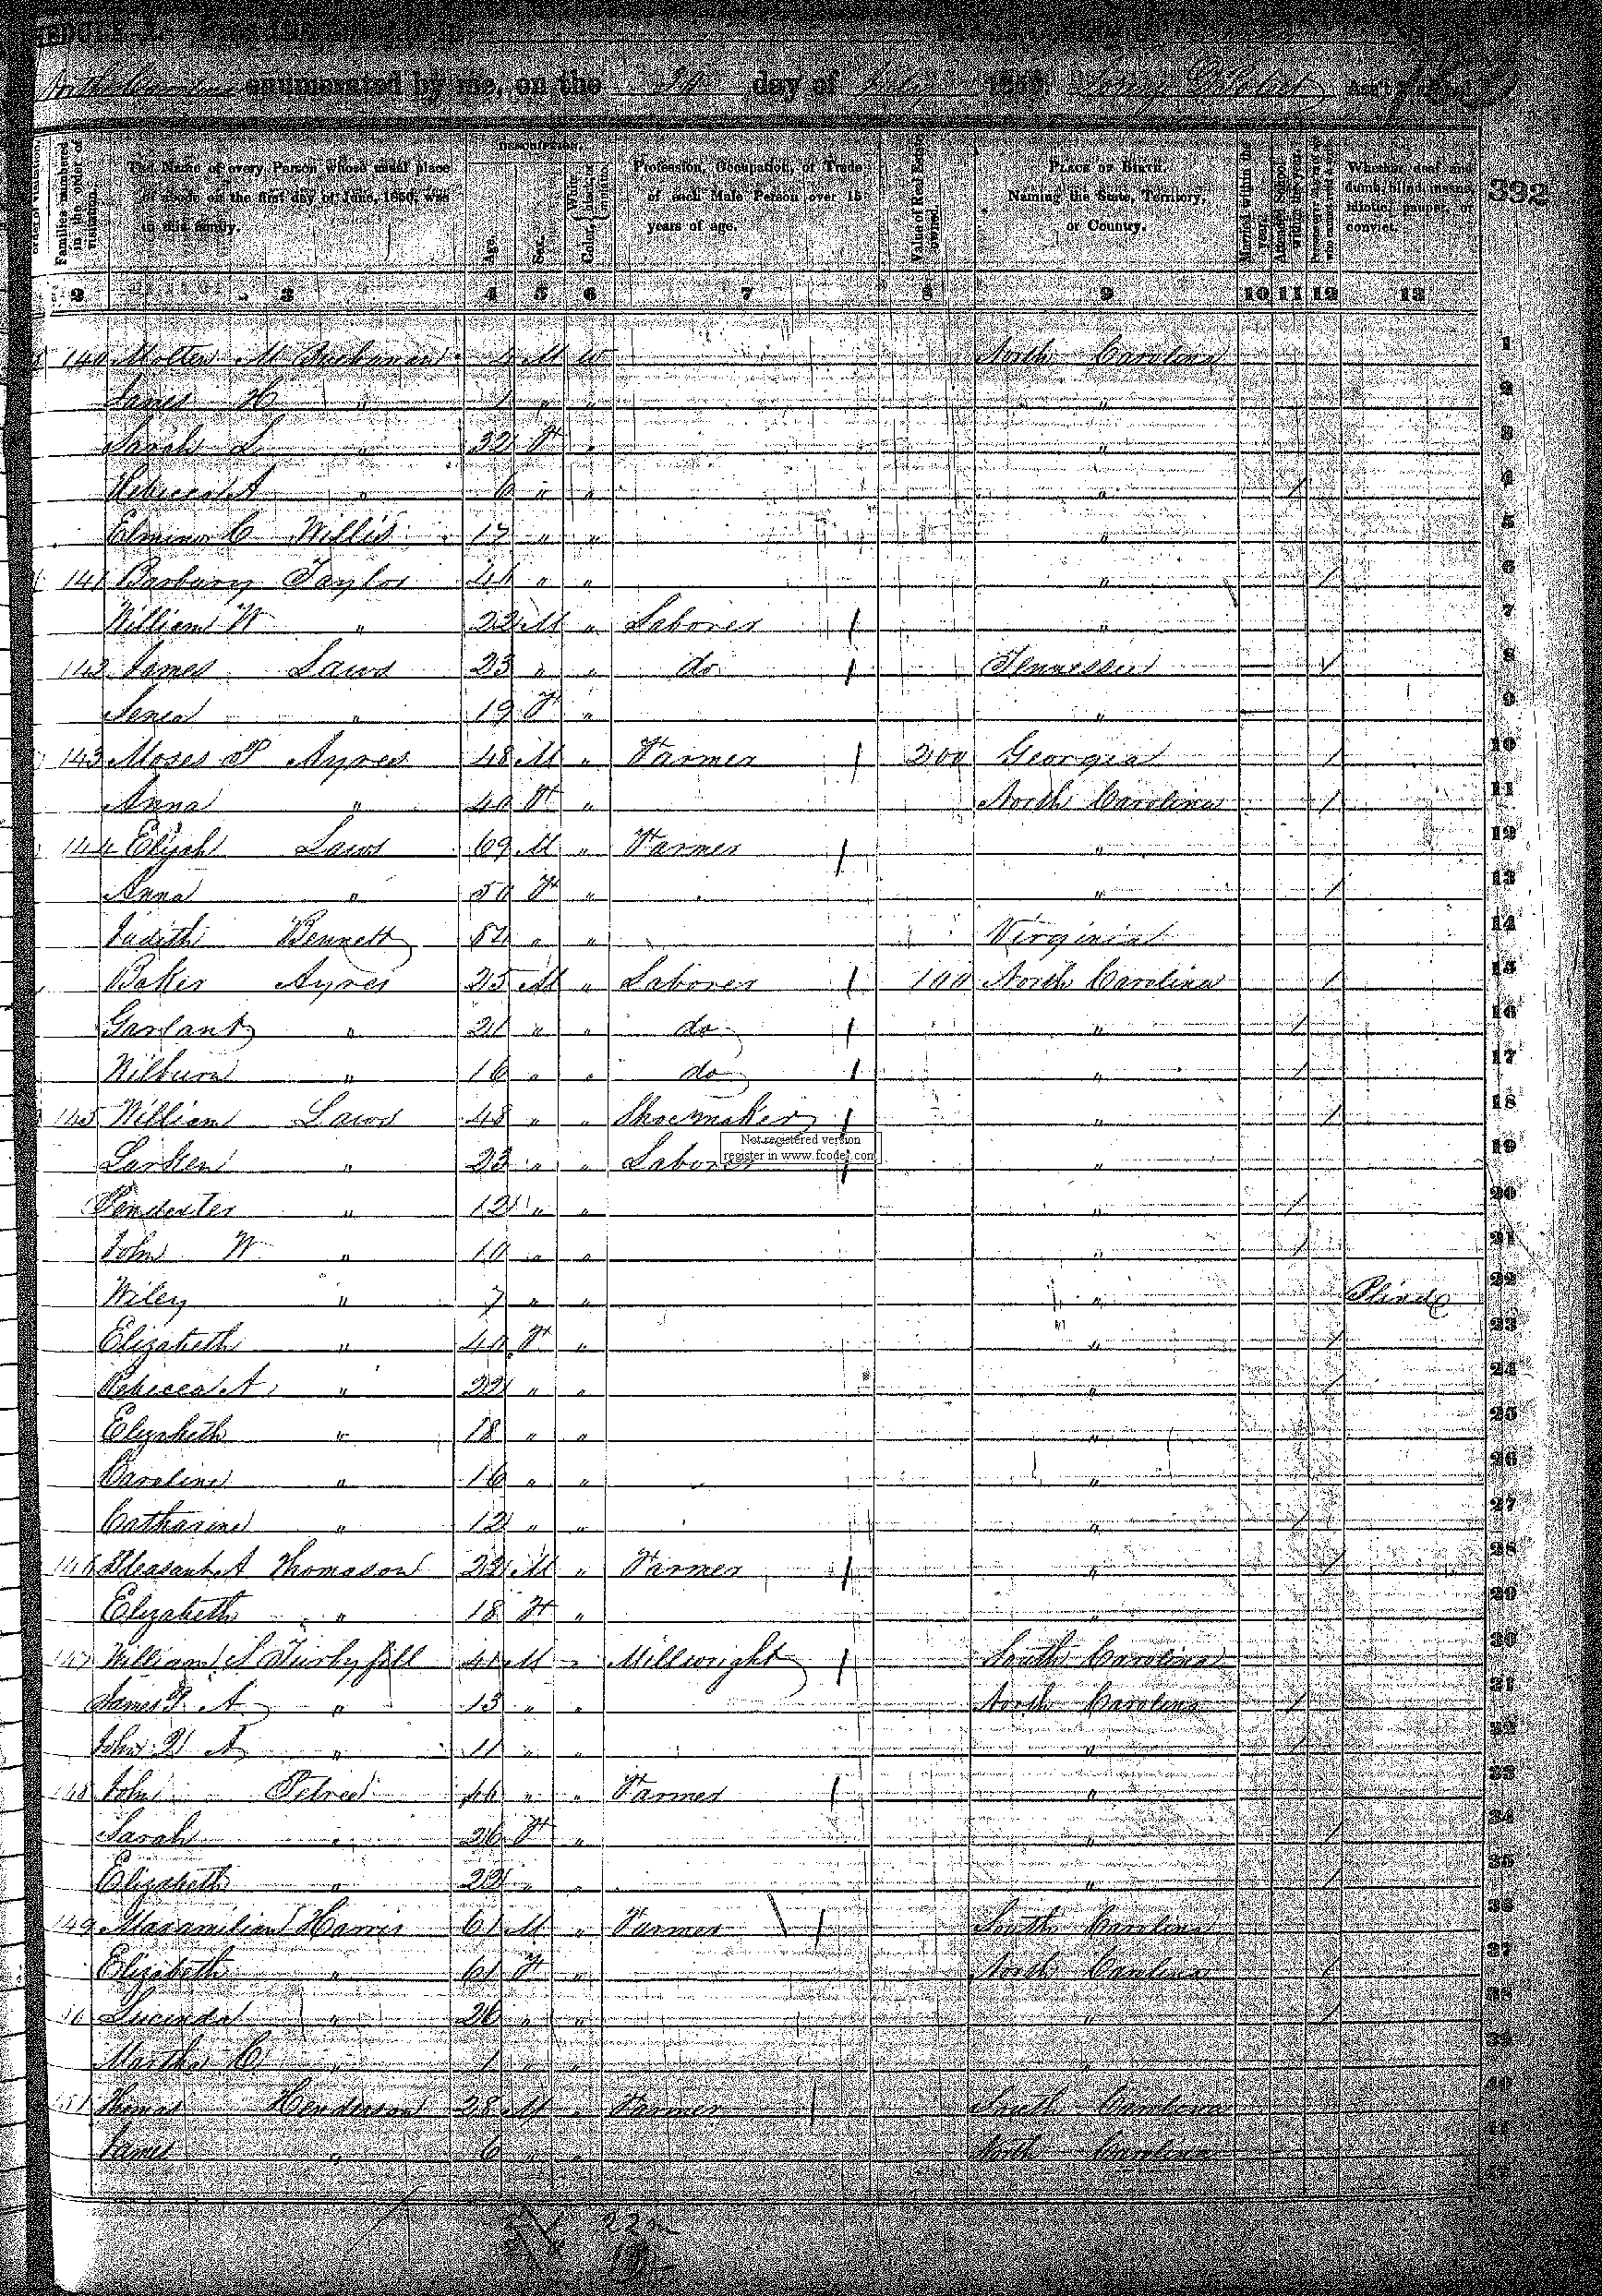 enumerated by me, on the day of July 1850. Ass't
Families numbered in the order of visitation.
The Name of every Person whose usual place of abode on the first day of June, 1850, was in this family.
DESCRIPTION.
Age.
Sex.
Color, White, black, or mulatto.
Profession, Occupation, or Trade of each Male Person over 15 years of age.
Value of Real Estate owned.
PLACE OF BIRTH. Naming the State, Territory, or Country.
Married within the year.
Attended School within the year.
Whether deaf and dumb, blind, insane, idiotic, pauper, or convict.
332
2 3 4 5 6 7 8 9 10 11 12 13
140 Molten M Buchanan 4 M W North Carolina 1
James H " 1 " " " 2
Sarah L " 32 F " " 3
Rebecca A " 6 " " " / 4
Elminor C Willis 17 " " " 5
141 Barbary Taylor 46 " " " / 6
William W " 22 M " Laborer " 7
142 James Laws 23 " " do Tennessee 8
" 19 F " " 9
143 Moses P Ayres 48 M " Farmer 200 Georgia / 10
Anna " 40 F " North Carolina / 11
144 Elijah Laws 69 M " Farmer " 12
Anna " 50 F " " / 13
Judith Bennett " " Virginia 14
Baker Ayres 25 M " Laborer 100 North Carolina / 15
Garland " 21 " " do " / 16
Wilburn " 16 " " do " / 17
145 William Laws 48 " " Shoemaker " / 18
Not registered version
register in www.fcoder.com
Larken " 23 " " Laborer " 19
Pendexter " 12 " " " / 20
John W " 10 " " " / 21
Wiley " 7 " " " Blind 22
Elizabeth " 40 F " " / 23
Rebecca A " 22 " " " / 24
Elizabeth " 18 " " " 25
Caroline " 16 " " " 26
Catharine " 12 " " " / 27
146 Pleasant A Thomason 22 M " Farmer " / 28
Elizabeth " 18 F " " 29
147 William S Turbyfill 41 M " Millwright South Carolina 30
James P A " 13 " " North Carolina / 31
John Q A " 11 " " " / 32
148 John Petree " " Farmer " 33
Sarah " 26 F " " / 34
Elizabeth " 22 " " " / 35
149 Maxamilian Harris 61 M " Farmer South Carolina 36
Elizabeth " 61 F " North Carolina / 37
Lucinda " 26 " " " / 38
Martha C " 1 " " " 39
151 Thomas Henderson 28 M " Farmer South Carolina 40
James " 6 " " North Carolina 41
42